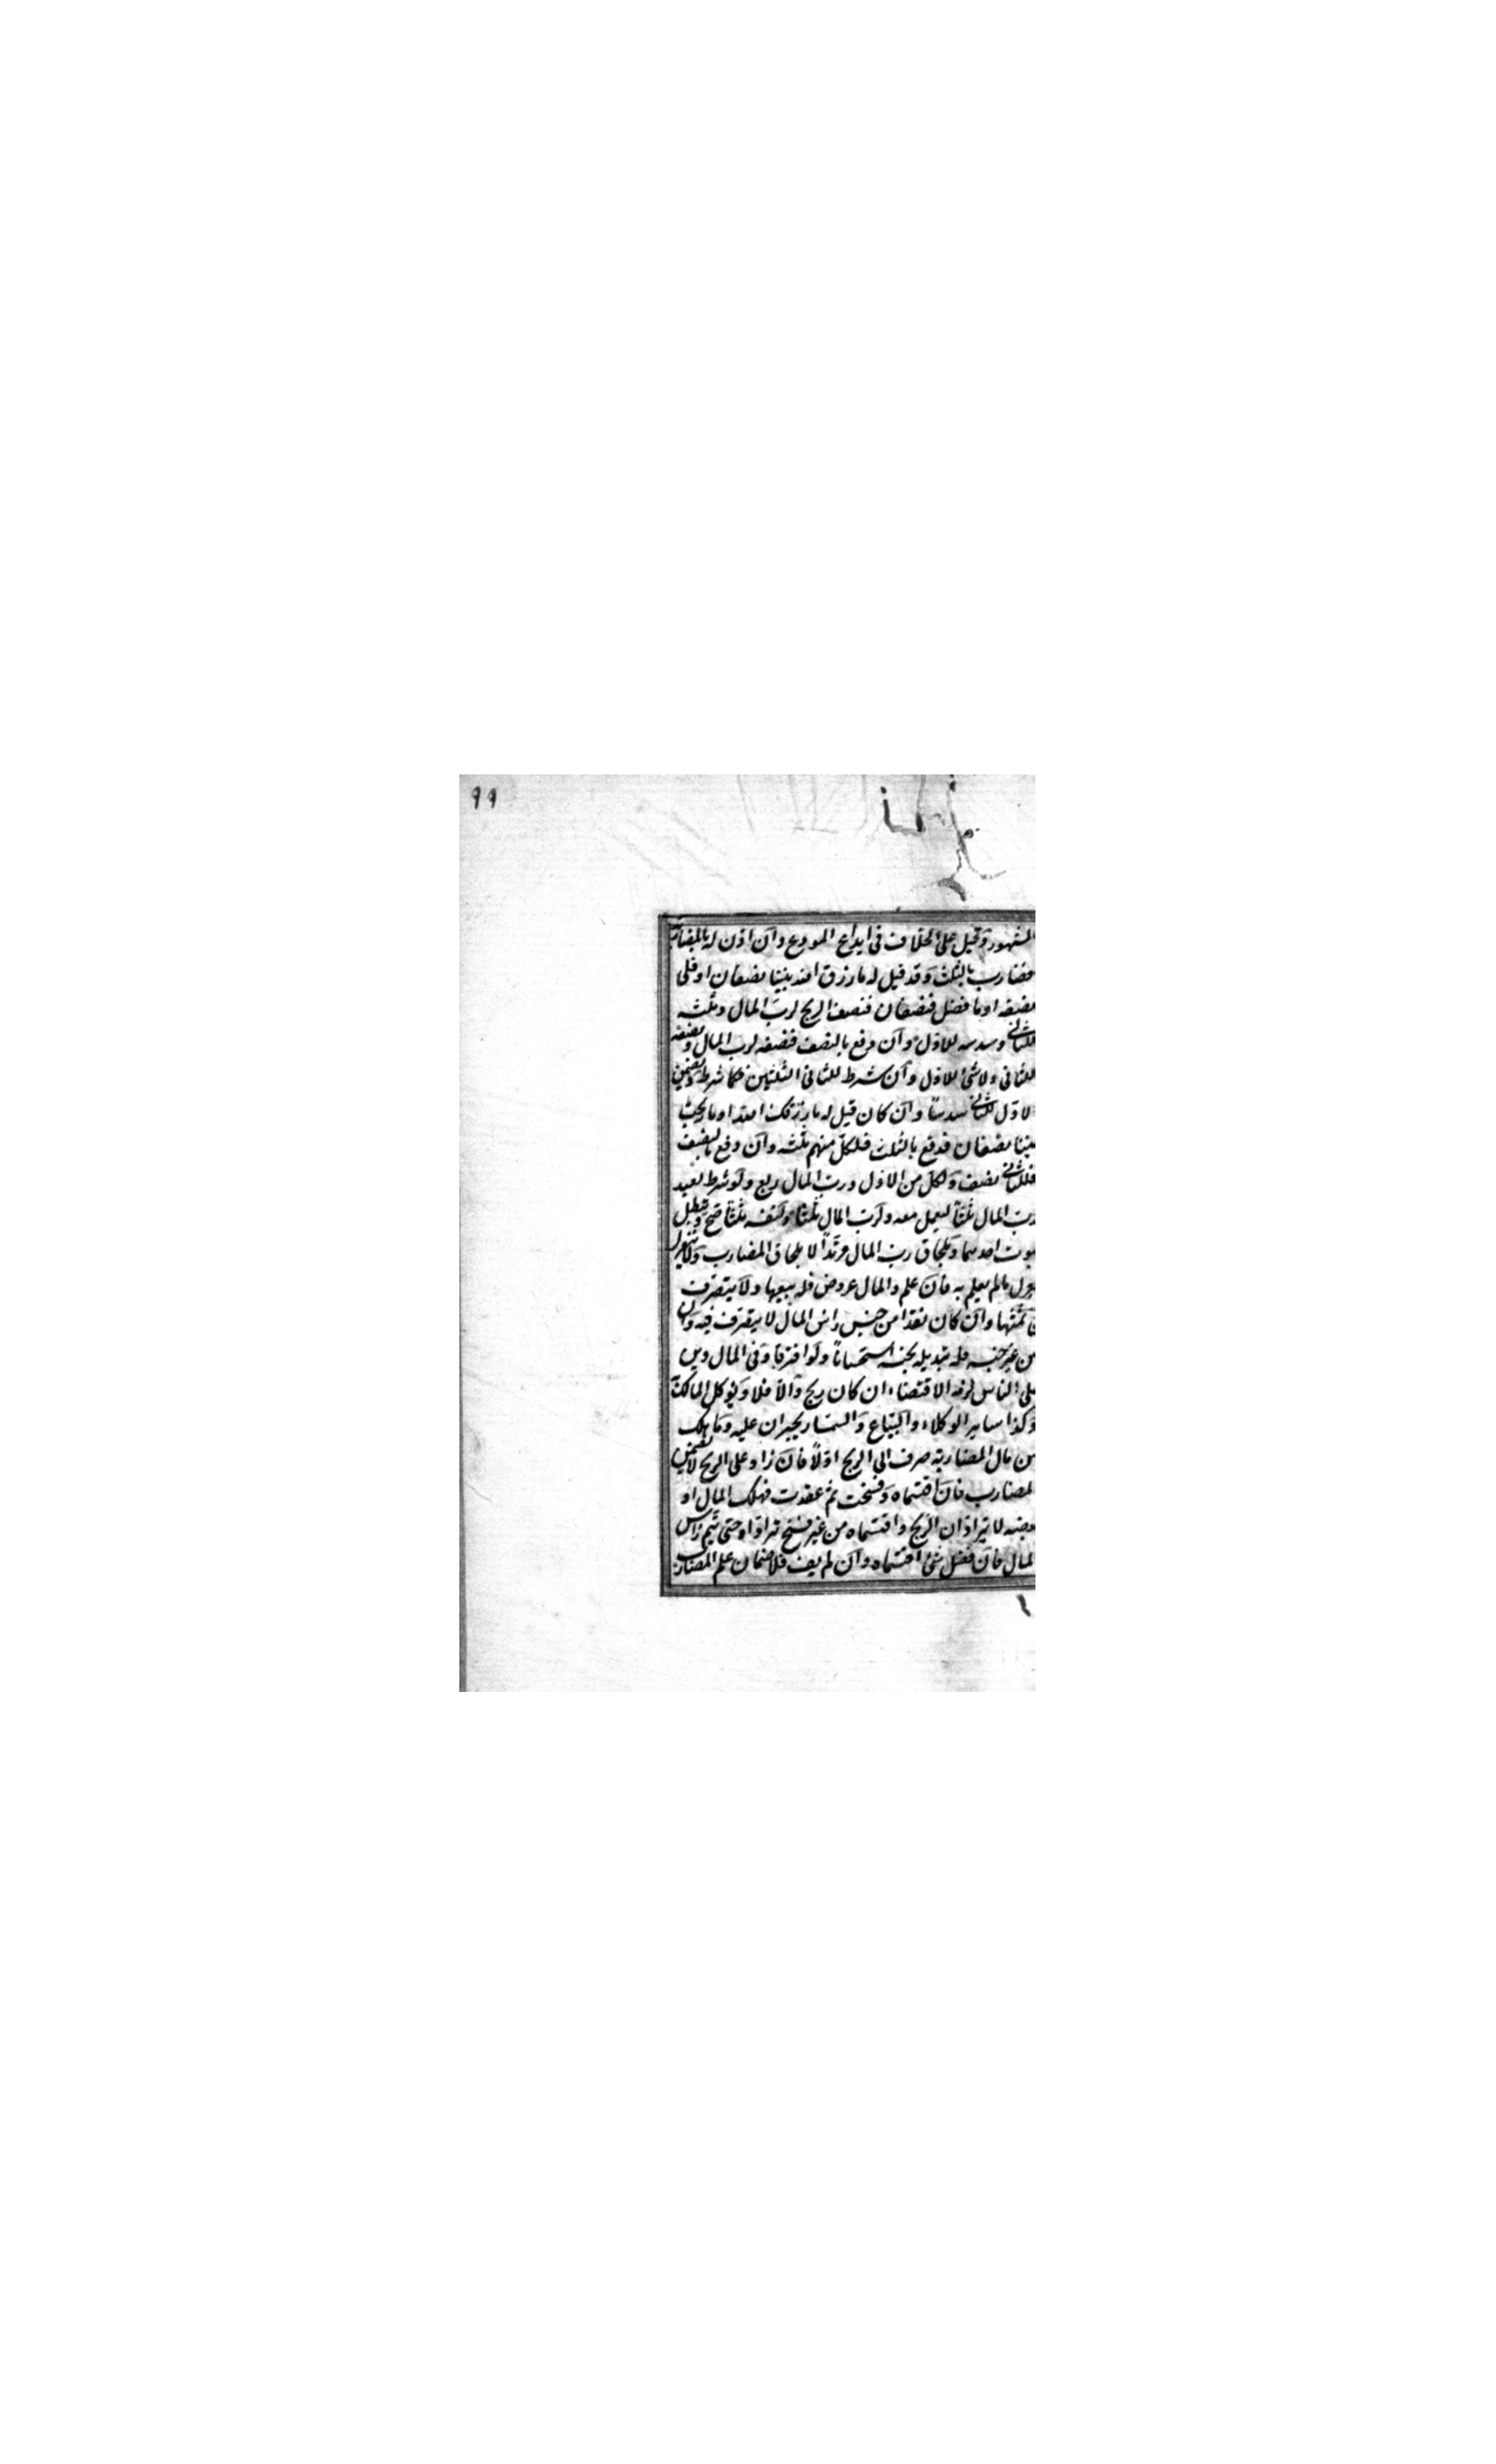 ٩٩
المشهور وقيل على الخلاف فى ايداع المودع وان اذن له بالمضاربة
فضارب بالثلث وقد قيل له ما رزق الله بيننا نصفان او فلى
نصفه او ما فضل فنصفان فنصف الربح لرب المال وثلثه
للثانى وسدسه للاول وان دفع بالنصف فنصفه لرب المال ونصفه
للثانى ولا شئ للاول وان شرط للثانى الثلثين فكما شرط ويضمن
الاول للثانى سدسا وان كان قيل له ما رزقك الله او ما ربحت
بيننا نصفان فدفع بالثلث فلكل منهم ثلثه وان دفع بالنصف
فللثانى نصف ولكل من الاول ورب المال ربع ولو شرط لعبد
رب المال ثلثا ليعمل معه ولرب المال ثلثا ولنفسه ثلثا صح وتبطل
بموت احدهما وبلحاق رب المال مرتدا لا بلحاق المضارب ولا ينعزل
بعزل ما لم يعلم به فان علم والمال عروض فله بيعها ولا يتصرف
فى ثمنها وان كان نقدا من جنس راس المال لا يتصرف فيه وان
من غير جنسه فله تبديله بجنسه استحسانا ولو افترقا وفى المال دين
على الناس لزمه الاقتضاء ان كان ربح والا فلا ويوكل المالك
وكذا سائر الوكلاء والبياع والسمسار يجبران عليه وما هلك
من مال المضاربة صرف الى الربح اولا فان زاد على الربح لا يضمن
المضارب فان اقتسماه وفسخت ثم عقدت فهلك المال او
بعضه لا يترادان الربح واقتسماه من غير فسخ ترادا حتى يتم راس
المال فان فضل شئ اقتسماه وان لم يف فلا ضمان علم المضارب